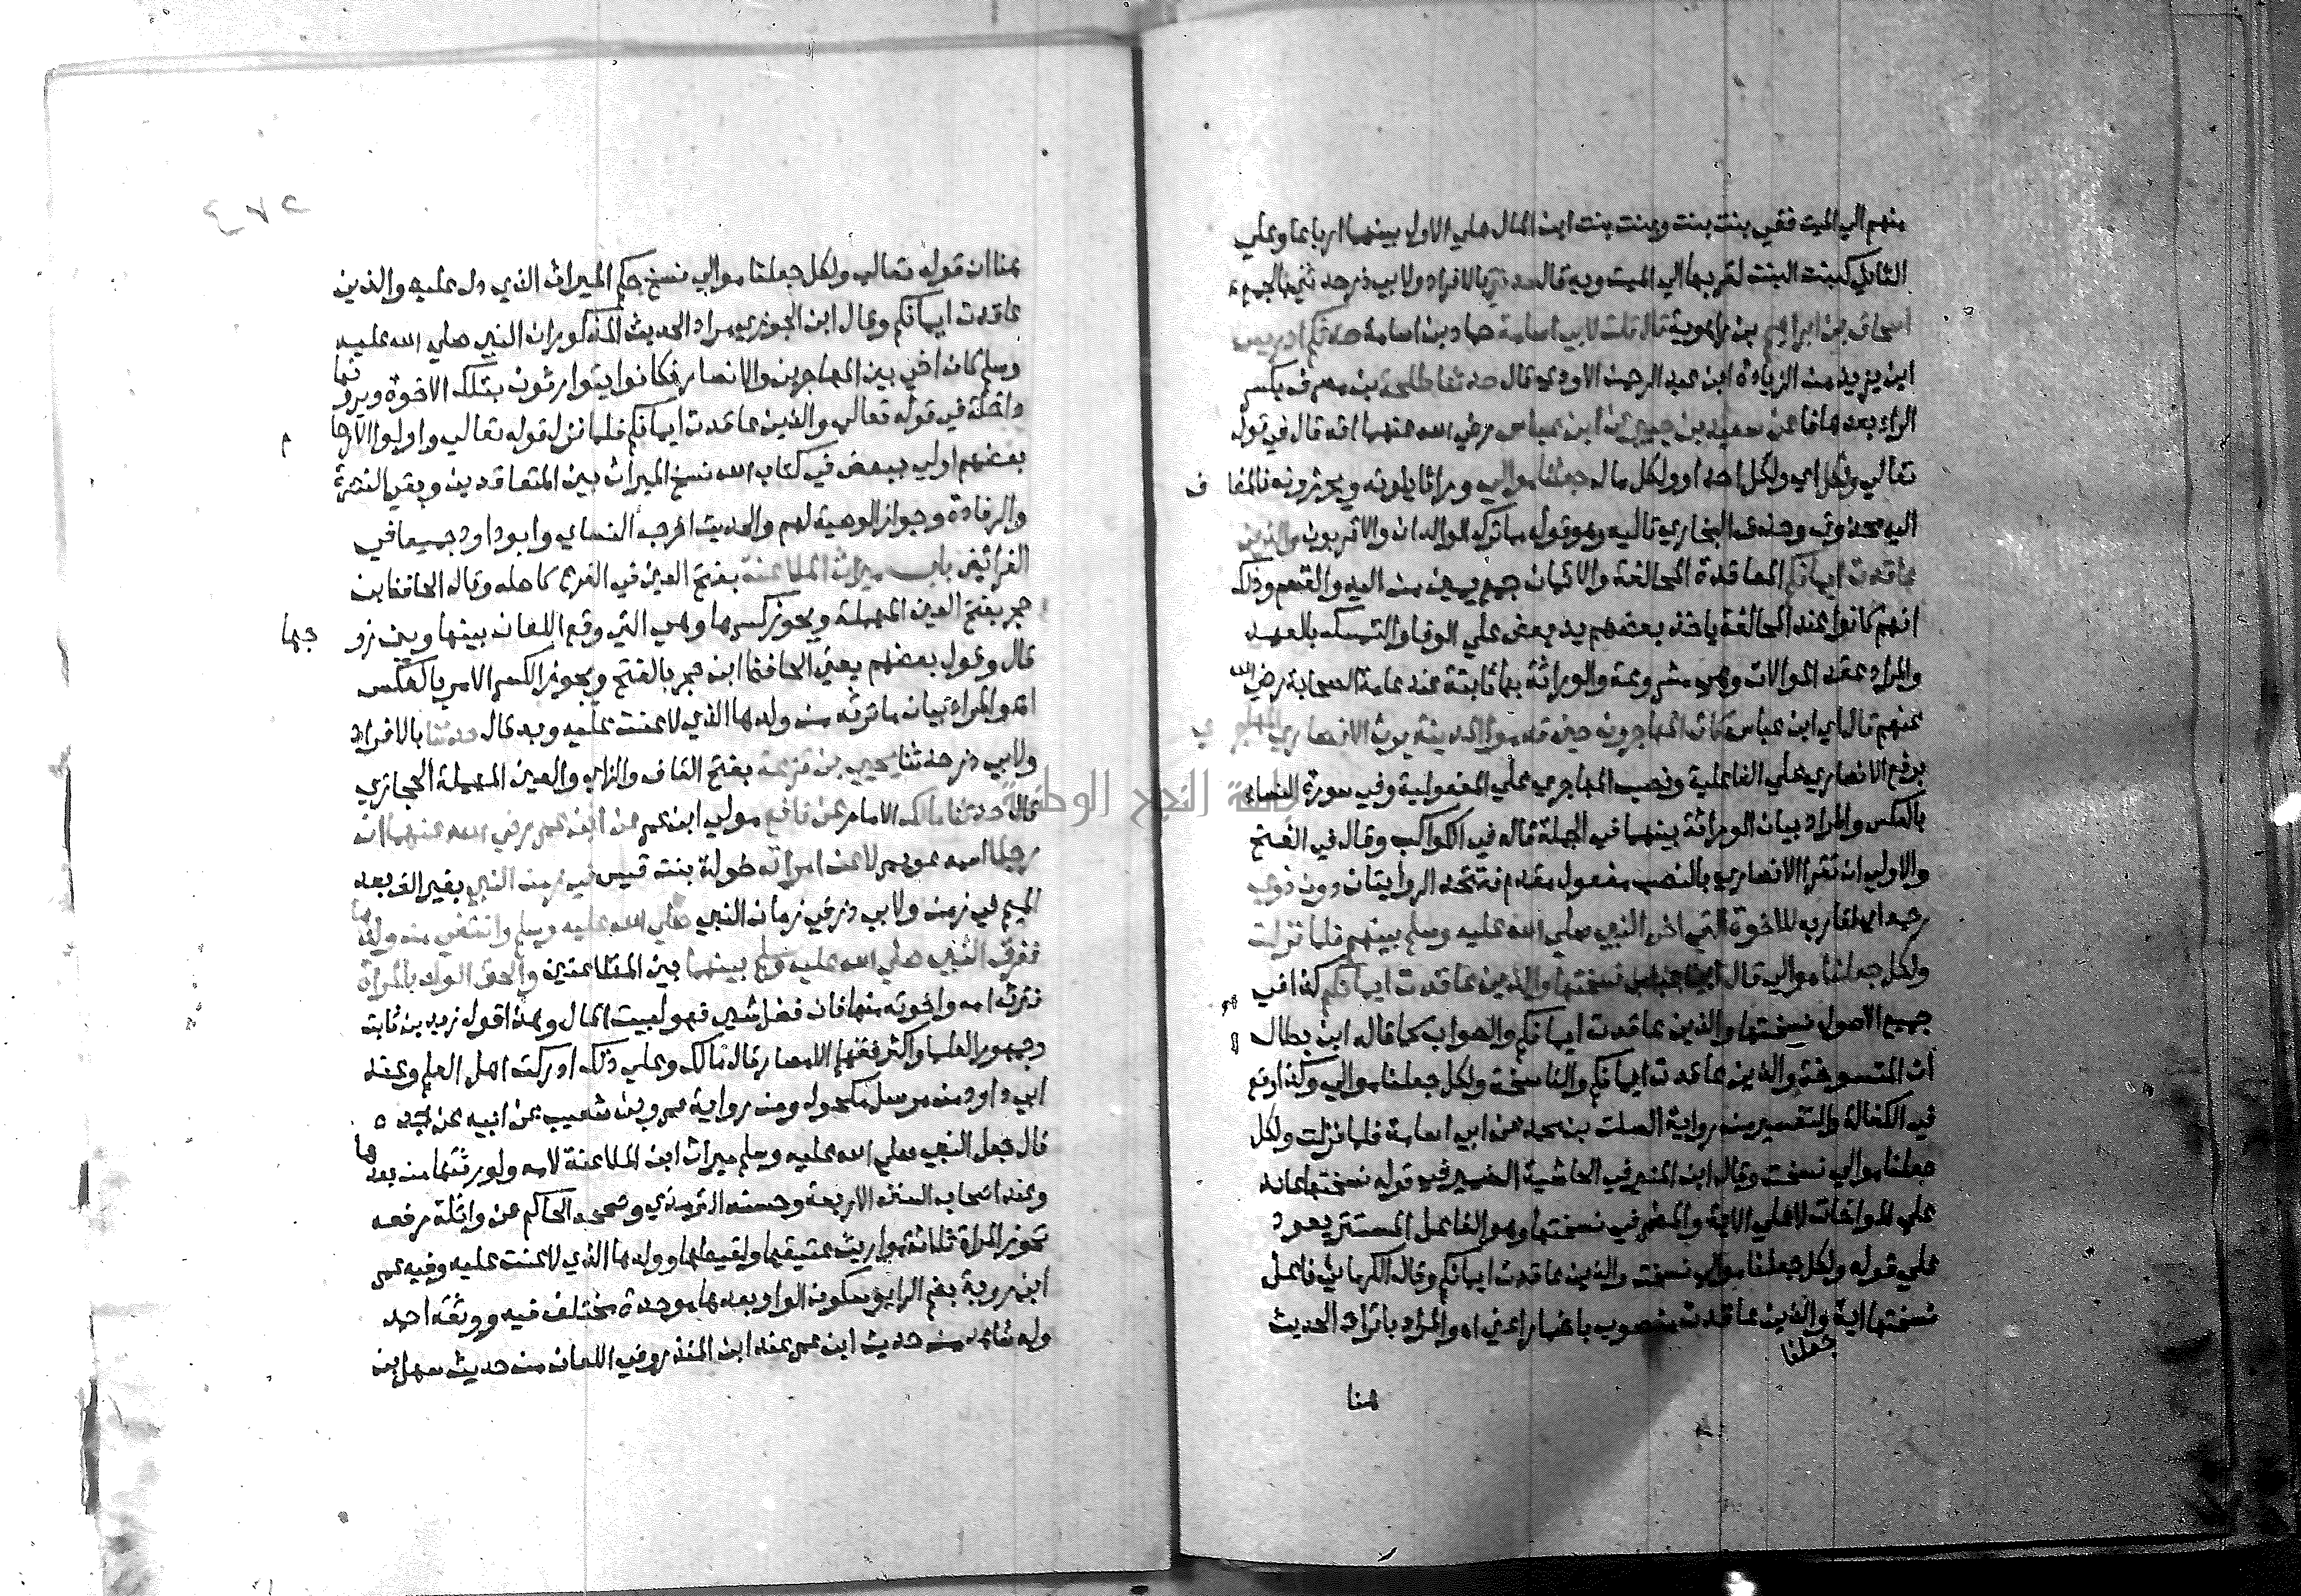 منهم الي الميت ففي بنت بنت وبنت بنت ابن المال علي الاول بينهما ارباعا وعلي
الثاني لبنت البنت لقربها الي الميت وبه قال حدثني بالافراد ولابي ذر حدثنا بالجمع
اسحاق بن ابراهيم بن راهوية قال قلت لابي اسامة حماد بن اسامة حدثكم ادريس
ابن يزيد من الزيادة ابن عبد الرحمن الاودي قال حدثنا طلحة بن مصرف بكسر
الراء بعدها فا عن سعيد بن جبير عن ابن عباس رضي الله عنهما انه قال في قوله
تعالي ولكل اي ولكل احد او ولكل مال جعلنا موالي وراثا يلونه ويحرزونه فالمضا ف
اليه محذوف وحذف البخاري تاليه وهو قوله مما ترك الوالدان والاقربون والذين
عاقدت ايمانكم المعاقدة المحالفة والايمان جمع يمين من اليد والقسم وذلك
انهم كانوا عند المحالفة ياخذ بعضهم يد بعض علي الوفا والتمسك بالعهد
والمراد عقد الموالات وهي مشروعة والوراثة بها ثابتة عند عامة الصحابة رضي الله
عنهم قال اي ابن عباس كان المهاجرون حين قدموا المدينة يرث الانصاري المهاجري
برفع الانصاري علي الفاعلية ونصب المهاجري علي المفعولية وفي سورة النساء
بالعكس والمراد بيان الوراثة بينهما في الجملة قاله في الكواكب وقال في الفتح
والاولي ان تقرا الانصاري بالنصب مفعول مقدم فتتحد الروايتان دون ذوي
رحمه اي اقاربه للاخوة التي اخي النبي صلي الله عليه وسلم بينهم فلما نزلت
ولكل جعلنا موالي قال ابن عباس نسختها والذين عاقدت ايمانكم كذا في
جميع الاصول نسختها والذين عاقدت ايمانكم والصواب كما قاله ابن بطال
ان المنسوخة والذين عاقدت ايمانكم والناسخة ولكل جعلنا موالي وكذا وقع
في الكفالة والتفسير من رواية الصلت بن محمد عن ابي اسامة فلما نزلت ولكل
جعلنا موالي نسخت وقال ابن المنير في الحاشية الضمير في قوله نسختها عائد
علي المواخات لا علي الاية والضمير في نسختها وهو الفاعل المستتر يعود
علي قوله ولكل جعلنا موالي نسخت والذين عاقدت ايمانكم وقال الكرماني فاعل
نسختها اية جعلنا والذين عاقدت منصوب باضمار اعني اه والمراد بايراد الحديث
هنا
هنا ان قوله تعالي ولكل جعلنا موالي نسخ حكم الميراث الذي دل عليه والذين
عاقدت ايمانكم وقال ابن الجوزي مراد الحديث المذكور ان النبي صلي الله عليه
وسلم كان اخي بين المهاجرين والانصار فكانوا يتوارثون بتلك الاخوة ويرونها
داخلة في قوله تعالي والذين عاقدت ايمانكم فلما نزل قوله تعالي واولوا الارحا م
بعضهم اولي ببعض في كتاب الله نسخ الميراث بين المتعاقدين وبقي النصرة
والرفادة وجواز الوصية لهم والحديث اخرجه النساي وابو داود جميعا في
الفرائض باب ميراث الملاعنة بفتح العين في الفرع كاصله وقال الحافظ ابن
حجر بفتح العين المهملة ويجوز كسرها وهي التي وقع اللعان بينها وبين زو جها
قال وقول بعضهم يعني الحافظ ابن حجر بالفتح ويجوز الكسر الامر بالعكس
اه والمراد بيان ما ترثه من ولدها الذي لاعنت عليه وبه قال حدثنا بالافراد
ولابي ذر حدثنا يحيي بن قزعة بفتح القاف والزاي والعين المهملة الحجازي
قال حدثنا مالك الامام عن نافع مولي ابن عمر عن ابن عمر رضي الله عنهما ان
رجلا اسمه عويمر لاعن امراته خولة بنت قيس في زمن النبي بغير الف بعد
الميم في زمن ولابي ذر في زمان النبي صلي الله عليه وسلم وانتفي من ولدها
ففرق النبي صلي الله عليه وسلم بينهما بين المتلاعنين والحق الولد بالمراة
فترثه امه واخوته منها فان فضل شيي فهو لبيت المال وهذا قول زيد بن ثابت
وجمهور العلما واكثر فقها الامصار قال مالك وعلي ذلك ادركت اهل العلم وعند
ابي داود من مرسل مكحول ومن رواية عمرو بن شعيب عن ابيه عن جده
قال جعل النبي صلي الله عليه وسلم ميراث ابن الملاعنة لامه ولورثتها من بعدها
وعند اصحاب السنن الاربعة وحسنه الترمذي وصححه الحاكم عن واثلة رفعه
تحوز المراة ثلاثة مواريث عتيقها ولقيطها وولدها الذي لاعنت عليه وفيه عمر
ابن روبة بضم الرا وسكون الواو بعدها موحدة مختلف فيه ووثقه احمد
وله شاهد من حديث ابن عمر عند ابن المنذر وفي اللعان من حديث سهل بن
جامعة النجاح الوطنية